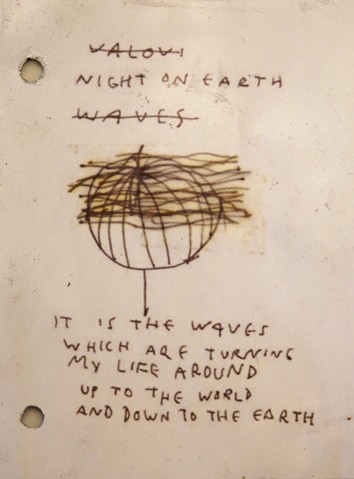 VALOVI
NIGHT ON EARTH
WAVES
IT IS THE WAVES
WHICH ARE TURNING
MY LIFE AROUND
UP TO THE WORLD
AND DOWN TO THE EARTH